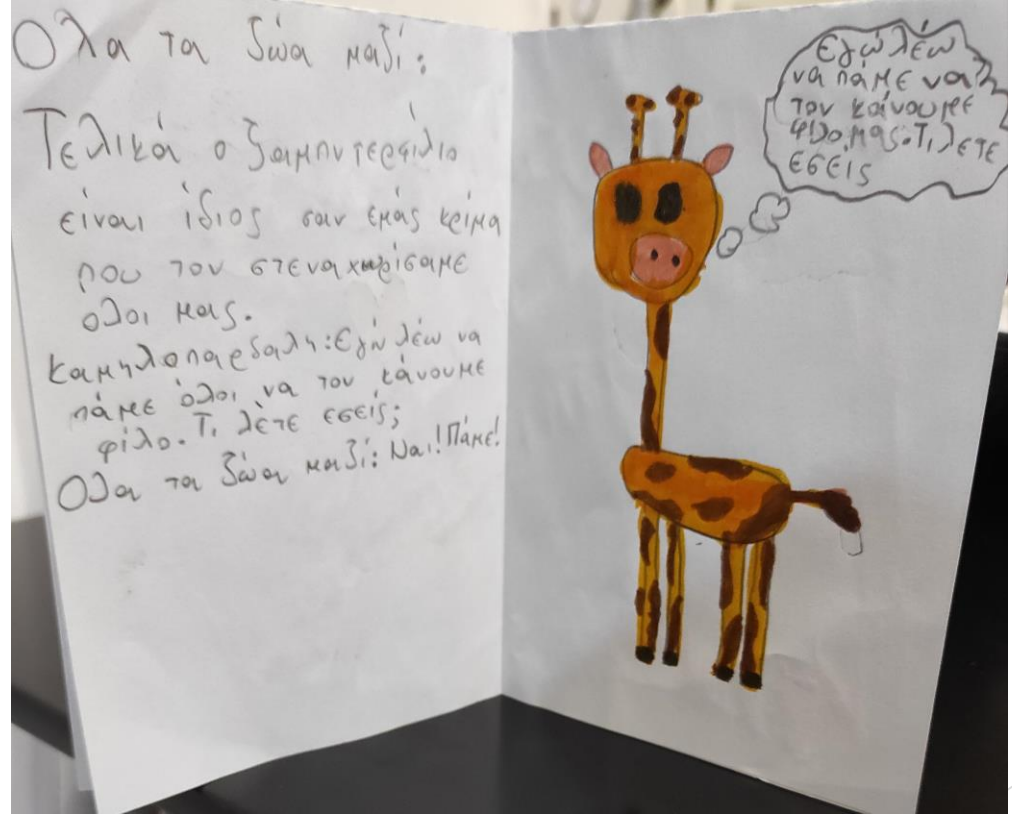 Ολα τα ζώα μαζί:
Τελικά ο ζαμπντερφίλιο
είναι ίδιος σαν εμάς κρίμα
που τον στεναχωρίσαμε
ολοι μας.
Καμηλοπαρδαλη: Εγώ λέω να
πάμε όλοι να τον κάνουμε
φίλο. Τι λέτε εσείς;
Ολα τα ζώα μαζί: Ναι! Πάμε!
Εγώ λέω
να πάμε να
τον κάνουμε
φίλο μας. Τι λετε
εσεις